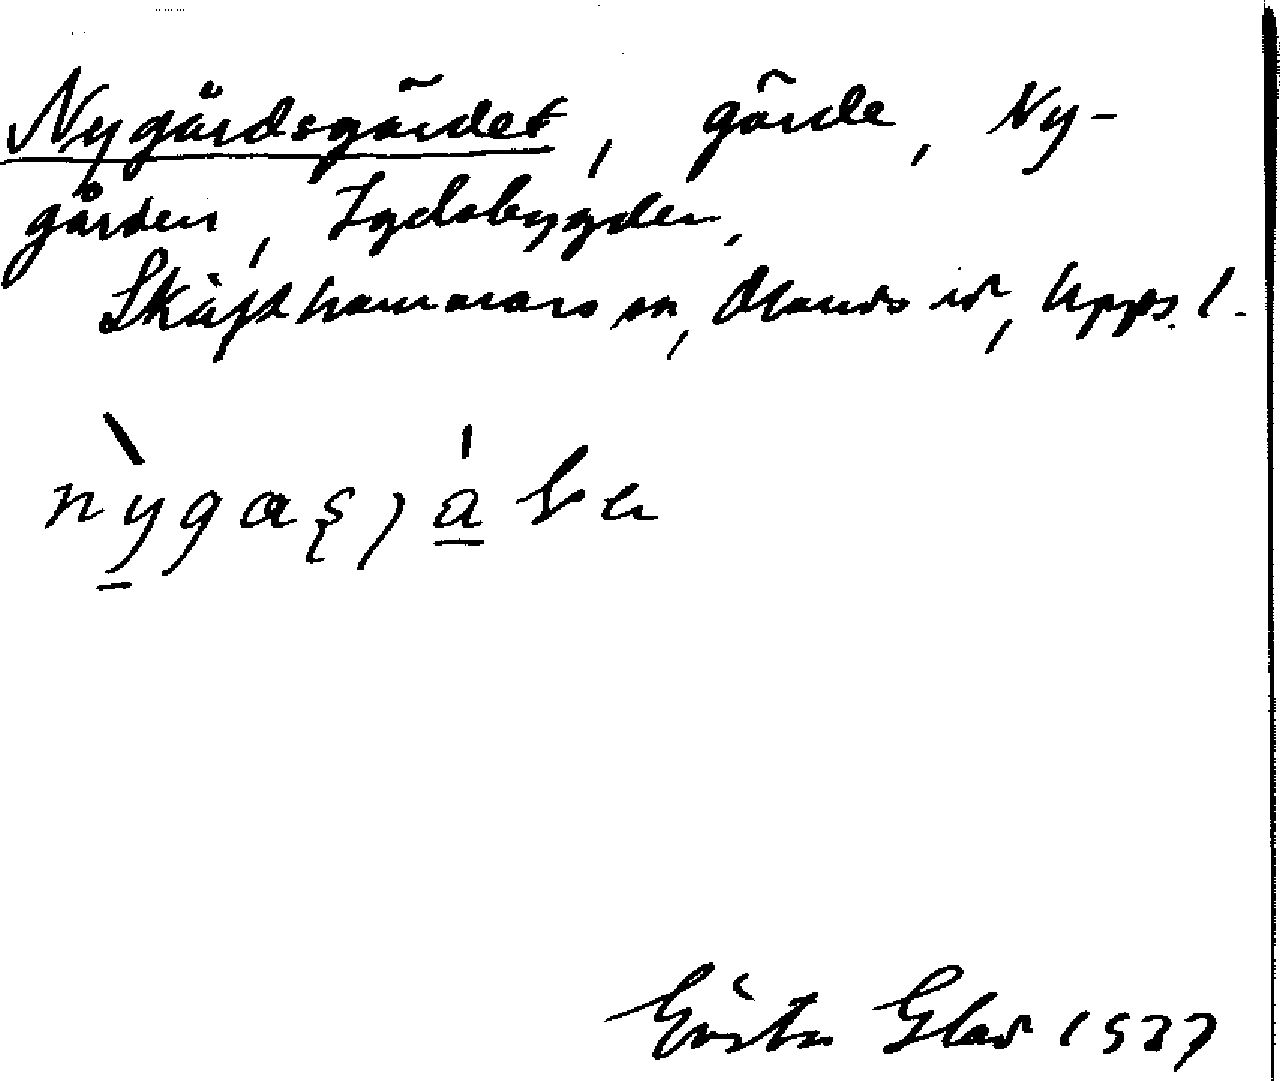 Nygårdsgärdet, gärde, Ny-
gården, Sydsbygden,
Skäfthammars sn, Olands hd, Uppl.
Gösta Glad 1937